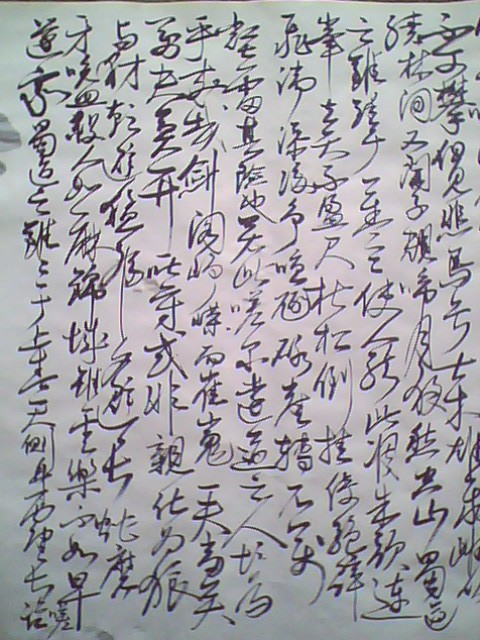 不可攀但見悲鳥号古木雄飛雌從
繞林間又聞子規啼月夜愁空山蜀道
之難難于上青天使人聽此凋朱顏連
峯去天不盈尺枯松倒挂倚絕壁
飛湍瀑流争喧豗砯崖轉石萬
壑雷其險也若此嗟尔遠道之人胡為
乎來哉劍閣崢嶸而崔嵬一夫當關
萬夫莫開所守或非親化為狼
与豺朝避猛虎夕避長蛇磨
牙吮血殺人如麻錦城雖雲樂不如早
還家蜀道之難難于上青天側身西望長咨嗟